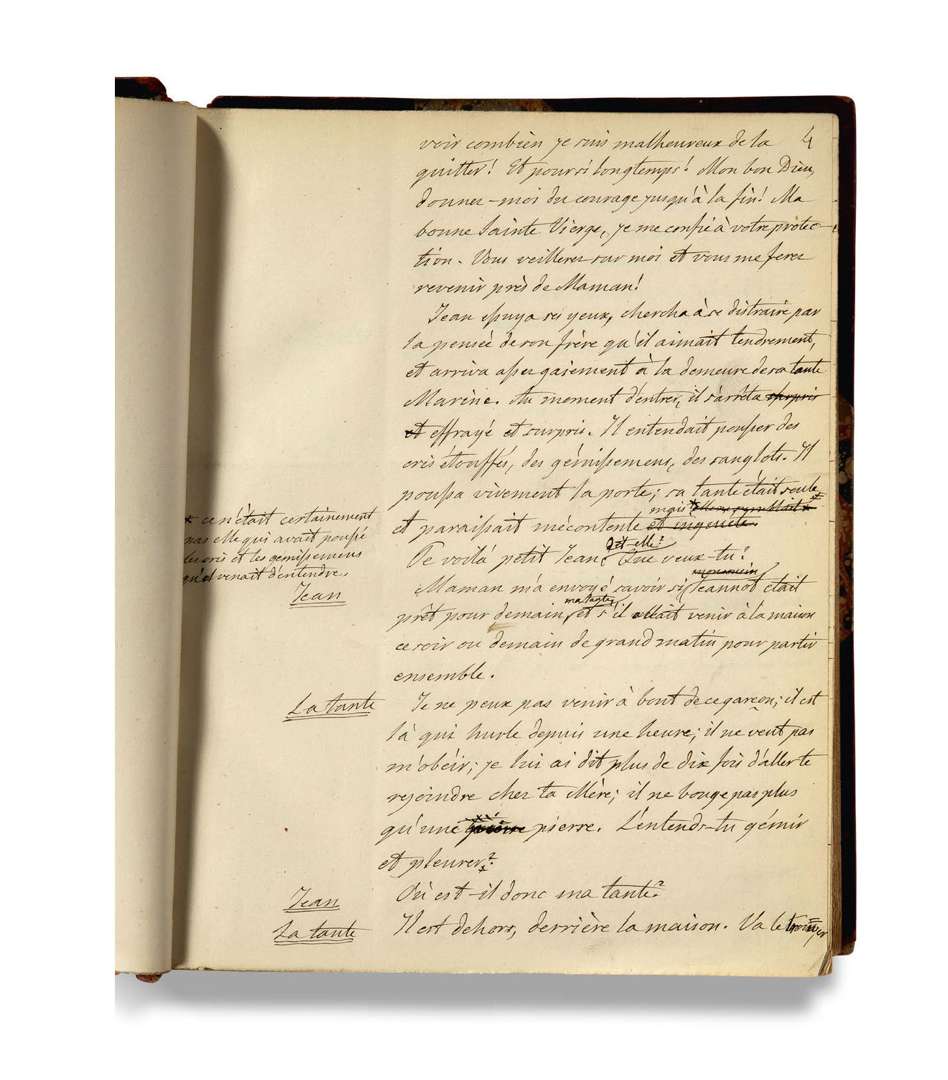 4
voir combien je suis malheureux de la
quitter! Et pour si longtemps! Mon bon Dieu,
donnez-moi du courage jusqu'à la fin! Ma
bonne Sainte Vierge, je me confie à votre protec-
tion. Vous veillerez sur moi et vous me ferez
revenir près de Maman!
Jean essuya ses yeux, chercha à se distraire par
la pensée de son frère qu'il aimait tendrement,
et arriva assez gaiement à la demeure de sa tante
Marine. Au moment d'entrer, il s'arrêta surpris
et effrayé et surpris. Il entendait pousser des
cris étouffés, des gémissemens, des sanglots. Il
poussa vivement la porte; sa tante était seule
mais*
et paraissait mécontente et inquiète.
* ce n'était certainement
pas elle qui avait poussé
les cris et les gémissemens
qu'il venait d'entendre.
dit-elle?
Te voilà petit Jean, Que veux-tu?
Jean
mon cousin
Maman m'a envoyé savoir si Jeannot était
ma tante,
prêt pour demain, et s'il allait venir à la maison
ce soir ou demain de grand matin pour partir
ensemble.
La tante
Je ne peux pas venir à bout de ce garçon; il est
là qui hurle depuis une heure; il ne veut pas
m'obéir; je lui ai dit plus de dix fois d'aller te
rejoindre chez ta Mère; il ne bouge pas plus
qu'une pierre. L'entends-tu gémir
et pleurer?
Jean
Où est-il donc ma tante?
La tante
Il est dehors, derrière la maison. Va le trouver